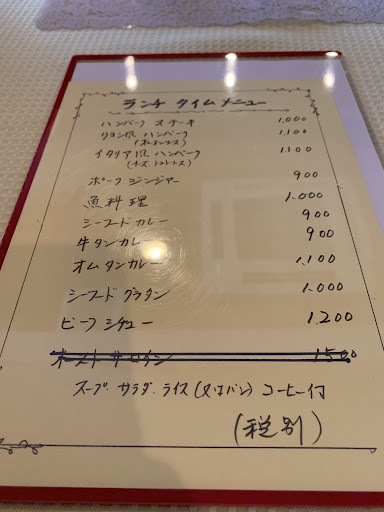 ランチ タイムメニュー
ハンバーグ ステーキ 1.000
リヨン風 ハンバーグ 1.100
(オニオンソース)
イタリア風 ハンバーグ 1.100
(チーズ、トマトソース)
ポーク ジンジャー 900
魚料理 1.000
シーフード カレー 900
牛タンカレー 900
オムタンカレー 1.100
シーフード グラタン 1.000
ビーフ シチュー 1.200
サーロイン 1500
スープ、サラダ、ライス(又はパン) コーヒー付
(税別)